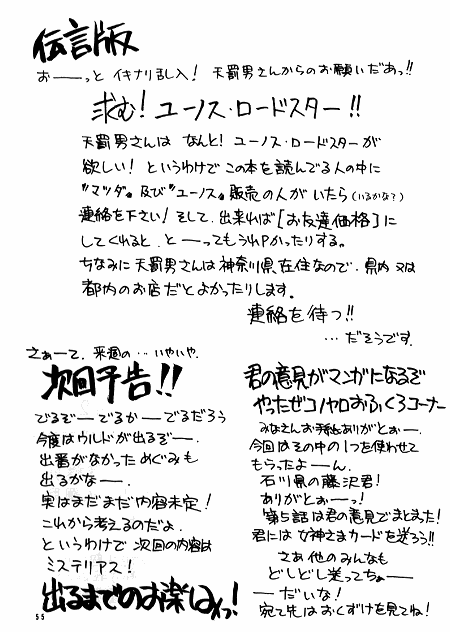 伝言版
おーーっと イキナリ乱入! 天罰男さんからのお願いだあっ!!
求む! ユーノス・ロードスター!!
天罰男さんは なんと! ユーノス・ロードスターが
欲しい! というわけで この本を読んでる人の中に
"マツダ"及び"ユーノス"販売の人がいたら(いるかな?)
連絡を下さい! そして、出来れば[お友達価格]に
してくれると、と――ってもうれPかったりする。
ちなみに天罰男さんは神奈川県在住なので、県内又は
都内のお店だとよかったりします。
連絡を待つ!!
…だそうです。
さぁーて、来週の…いやいや、
次回予告!!
でるぞ―でるか―でるだろう
今度はウルドが出るぞ―.
出番がなかっためぐみも
出るかな―.
実はまだまだ内容未定!
これから考えるのだよ.
というわけで 次回の内容は
ミステリアス!
出るまでのお楽しみっ!
君の意見がマンガになるぞ
やったぜコノヤロおふくろコーナー
みなさんお手紙ありがとぉー.
今回はその中の1つを使わせて
もらったよーん.
石川県の藤沢君!
ありがとぉーっ!
第5話は君の意見でまとまった!
君には女神さまカードを送ろう!!
さぁ他のみんなも
どしどし送ってちょ――
―だいな!
宛て先はおくずけを見てね!
55